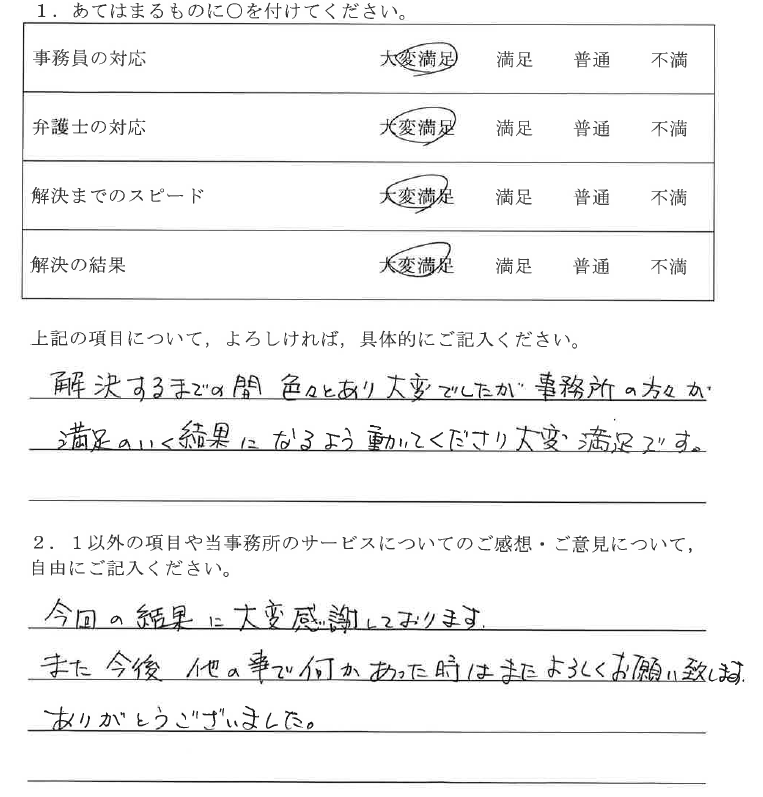 １．あてはまるものに〇を付けてください。
事務員の対応 大変満足 満足 普通 不満
弁護士の対応 大変満足 満足 普通 不満
解決までのスピード 大変満足 満足 普通 不満
解決の結果 大変満足 満足 普通 不満
上記の項目について，よろしければ，具体的にご記入ください。
解決するまでの間 色々とあり大変でしたが 事務所の方々が
満足のいく結果になるよう動いてくださり大変満足です。
２．１以外の項目や当事務所のサービスについてのご感想・ご意見について，
自由にご記入ください。
今回の結果に大変感謝しております。
また今後 他の事で何かあった時はまたよろしくお願い致します。
ありがとうございました。